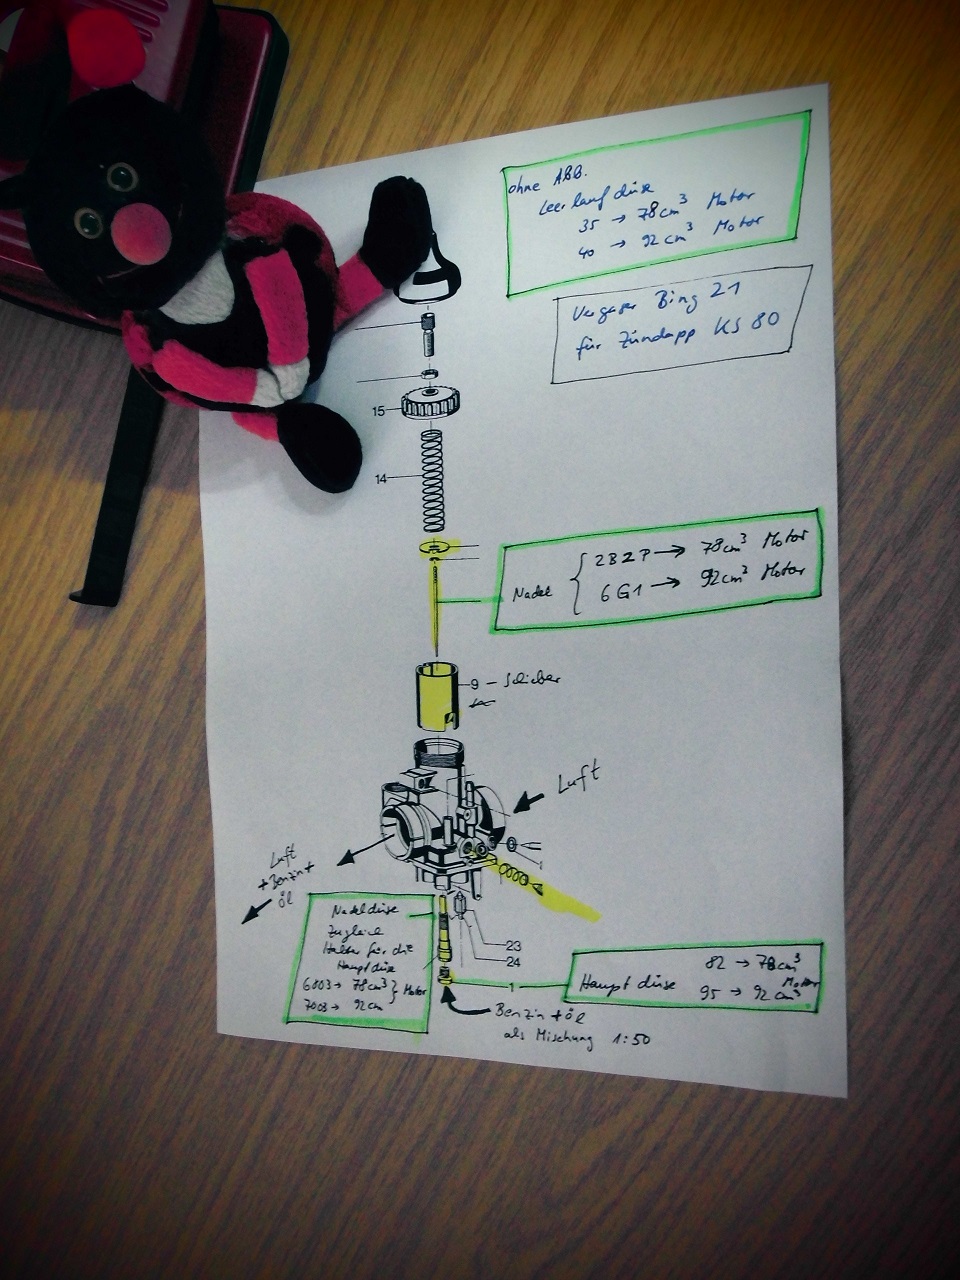 ohne ABB.
Leerlaufdüse
35 → 78cm³ Motor
40 → 92cm³ Motor
Vergaser Bing 21
für Zündapp KS 80
15
14
Nadel { 2B2P → 78cm³ Motor
6G1 → 92cm³ Motor
9 - Schieber
Luft
Luft
+ Benzin +
öl
Nadeldüse
zugleich
Halter für die
Hauptdüse
6803 → 78cm³ } Motor
7003 → 92cm
23
24
1
82 → 78cm³
Hauptdüse Motor
95 → 92cm³
Benzin + öl
als Mischung 1:50